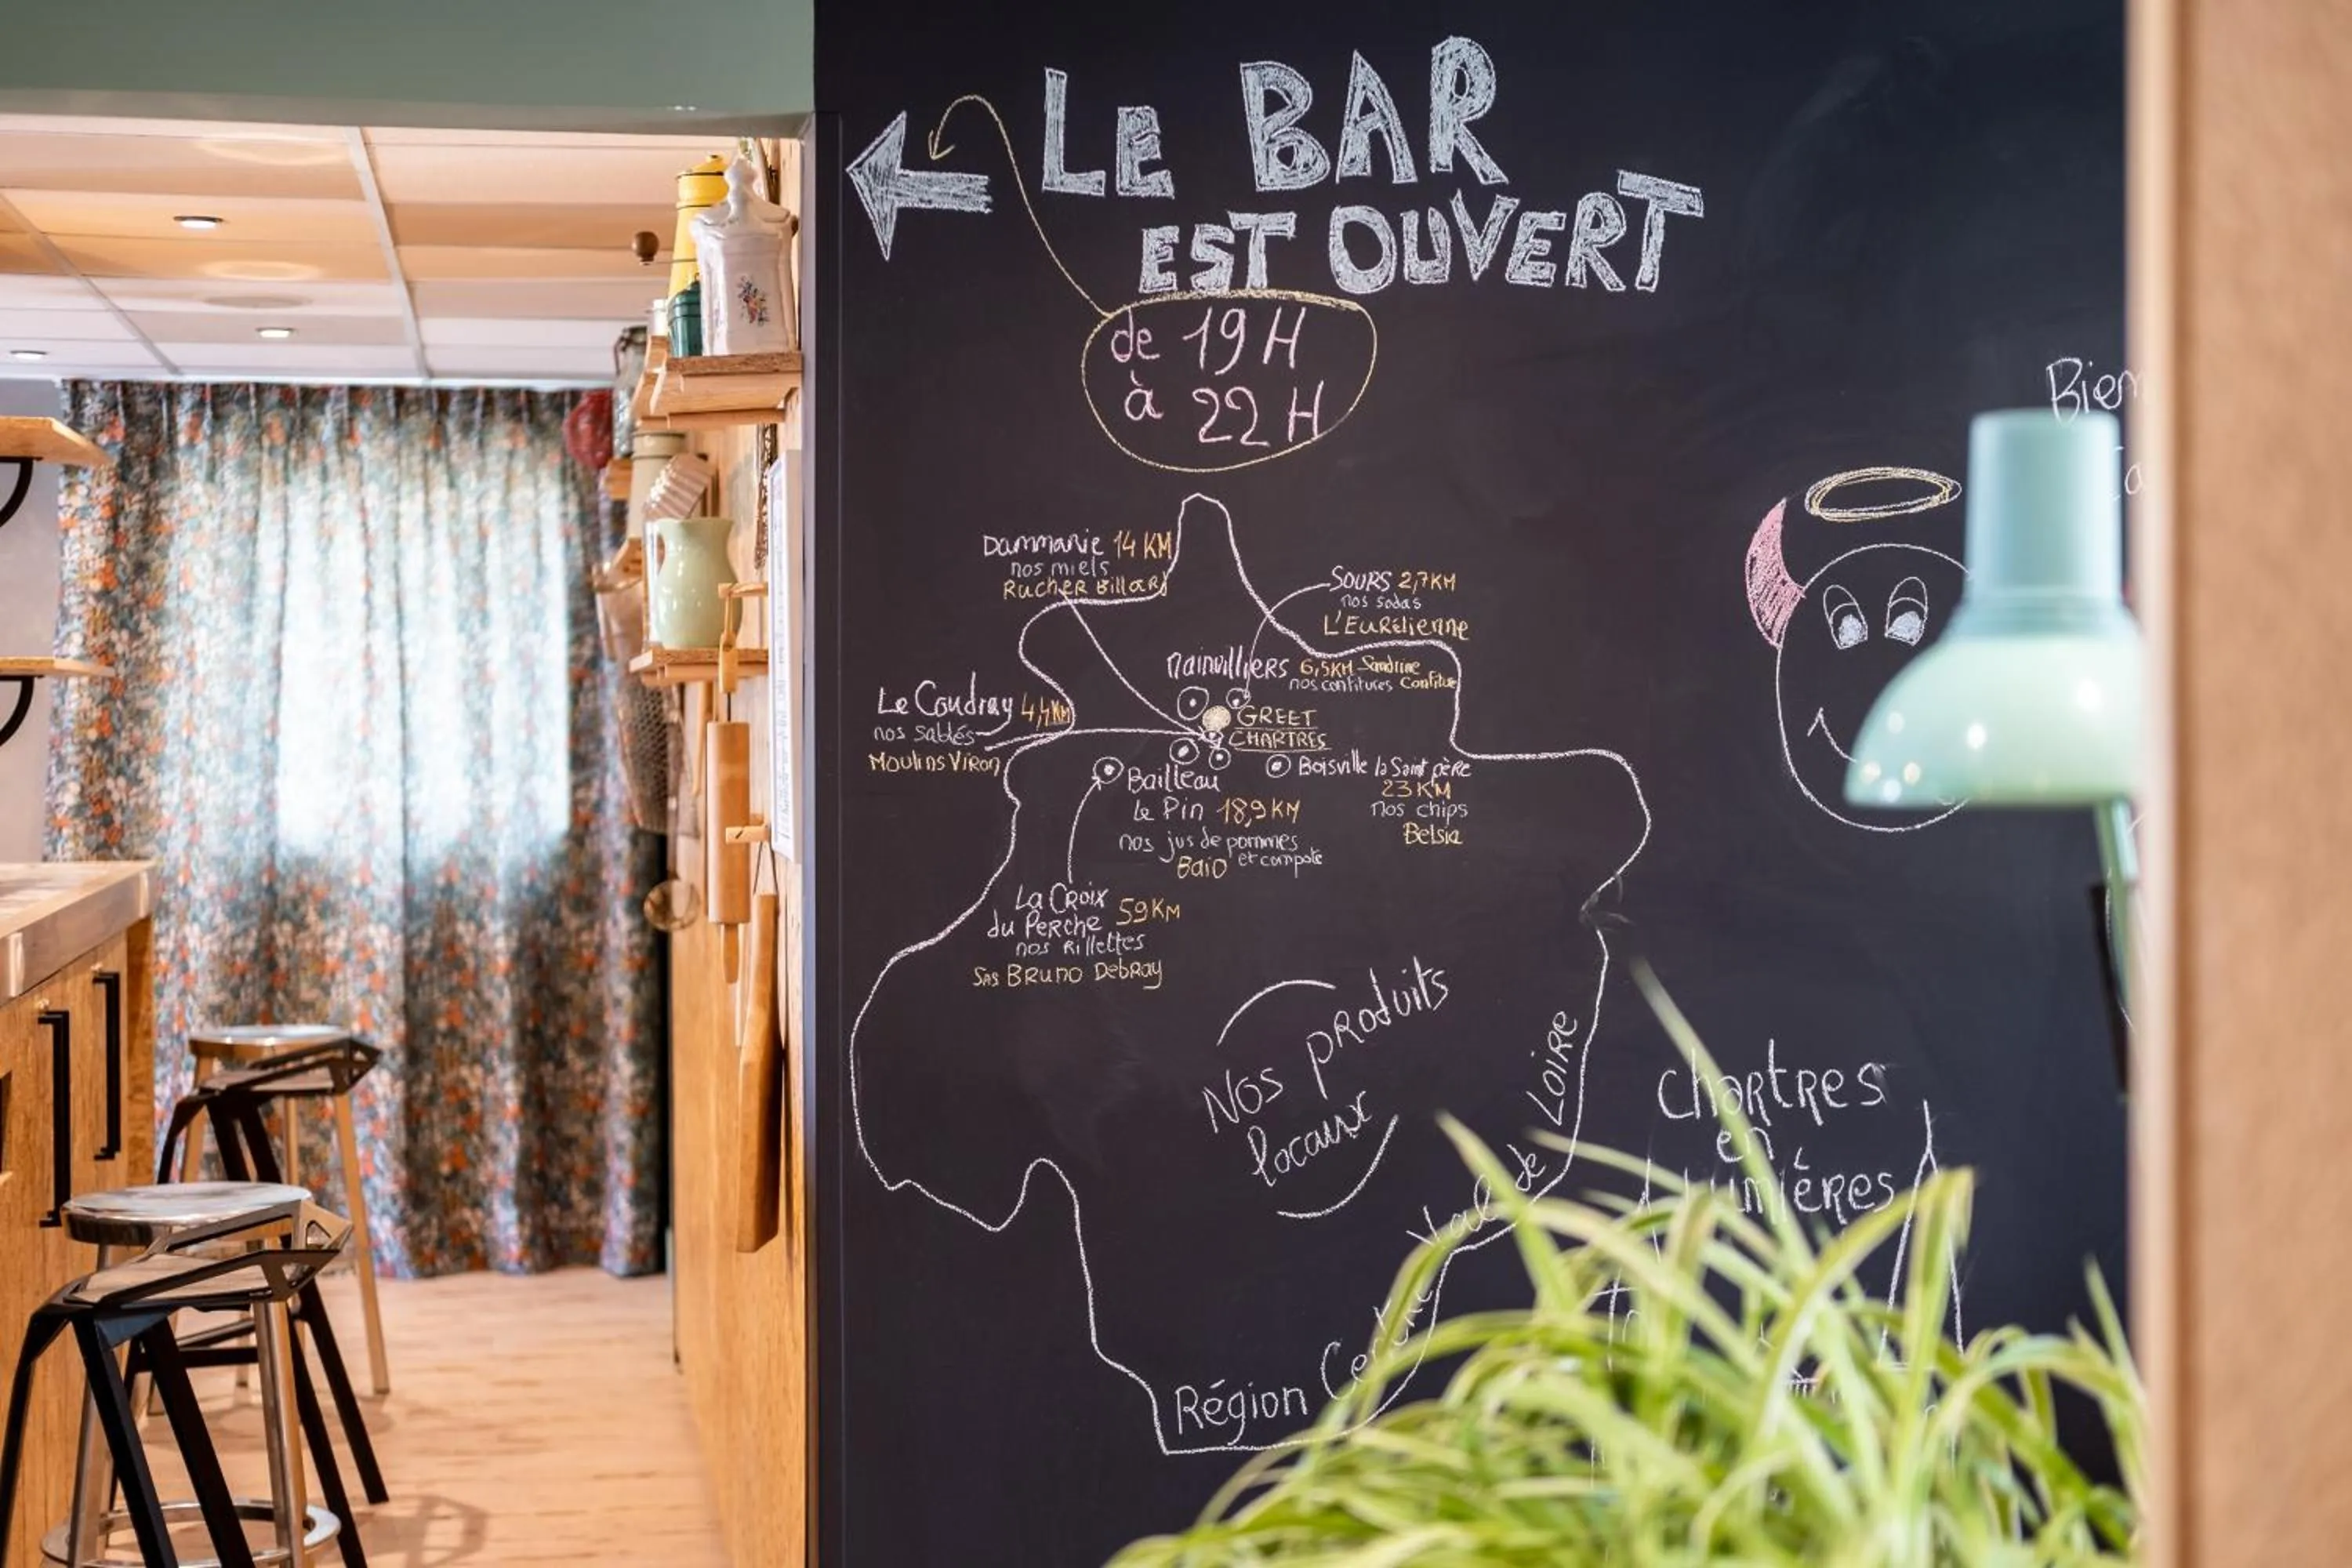 LE BAR
EST OUVERT
de 19H
à 22H
Dammarie 14 KM
nos miels
Rucher Billard
SOURS 2,7KM
nos sodas
L'EURélienne
Mainvilliers 6,5KM Sandrine
nos confitures Confitue
Le Coudray 4,4KM
nos sablés
Moulins Viron
GREET
CHARTRES
Bailleau
Le Pin 18,9KM
nos jus de pommes
et compote
Baio
Boisville la Saint père
23 KM
nos chips
Belsia
La Croix
du Perche 59KM
nos Rillettes
SAS BRUNO DebRay
Nos produits
locaux
Région Centre Val de LOIRE
Chartres
en
Lumières
Bien